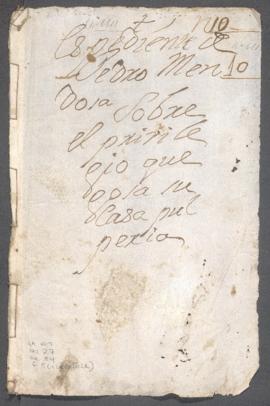 + N 10
Espediente de
Pedro Men 10
dosa Sobre
el privile
gio que
gosa su
Casa pul
peria